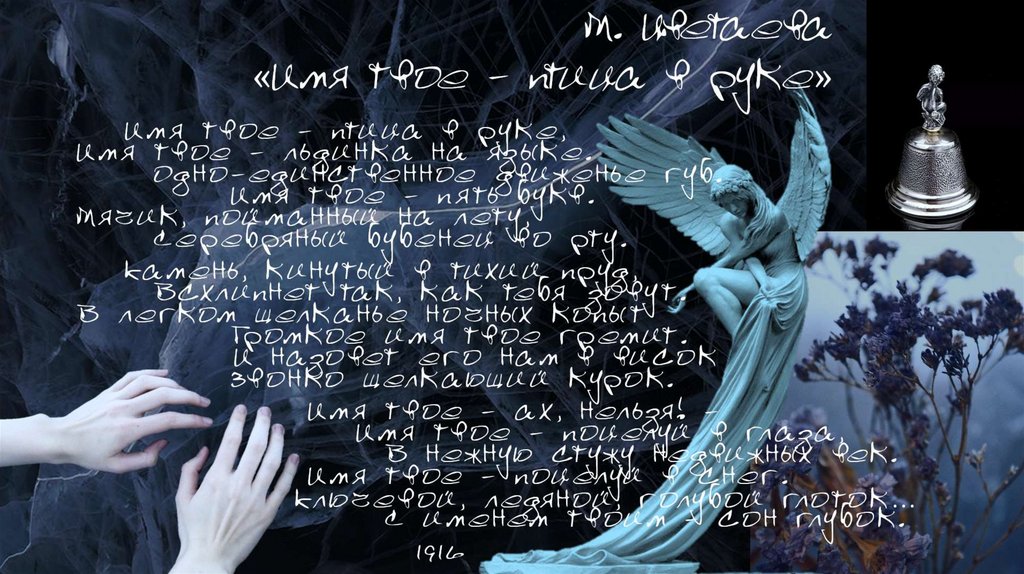 М. Цветаева
«Имя твое – птица в руке»
Имя твое – птица в руке,
Имя твое – льдинка на языке.
Одно-единственное движенье губ.
Имя твое – пять букв.
Мячик, пойманный на лету,
Серебряный бубенец во рту.
Камень, кинутый в тихий пруд,
Всхлипнет так, как тебя зовут.
В легком щелканье ночных копыт
Громкое имя твое гремит.
И назовет его нам в висок
Звонко щелкающий курок.
Имя твое – ах, нельзя! –
Имя твое – поцелуй в глаза,
В нежную стужу недвижных век.
Имя твое – поцелуй в снег.
Ключевой, ледяной, голубой глоток...
С именем твоим – сон глубок.
1916